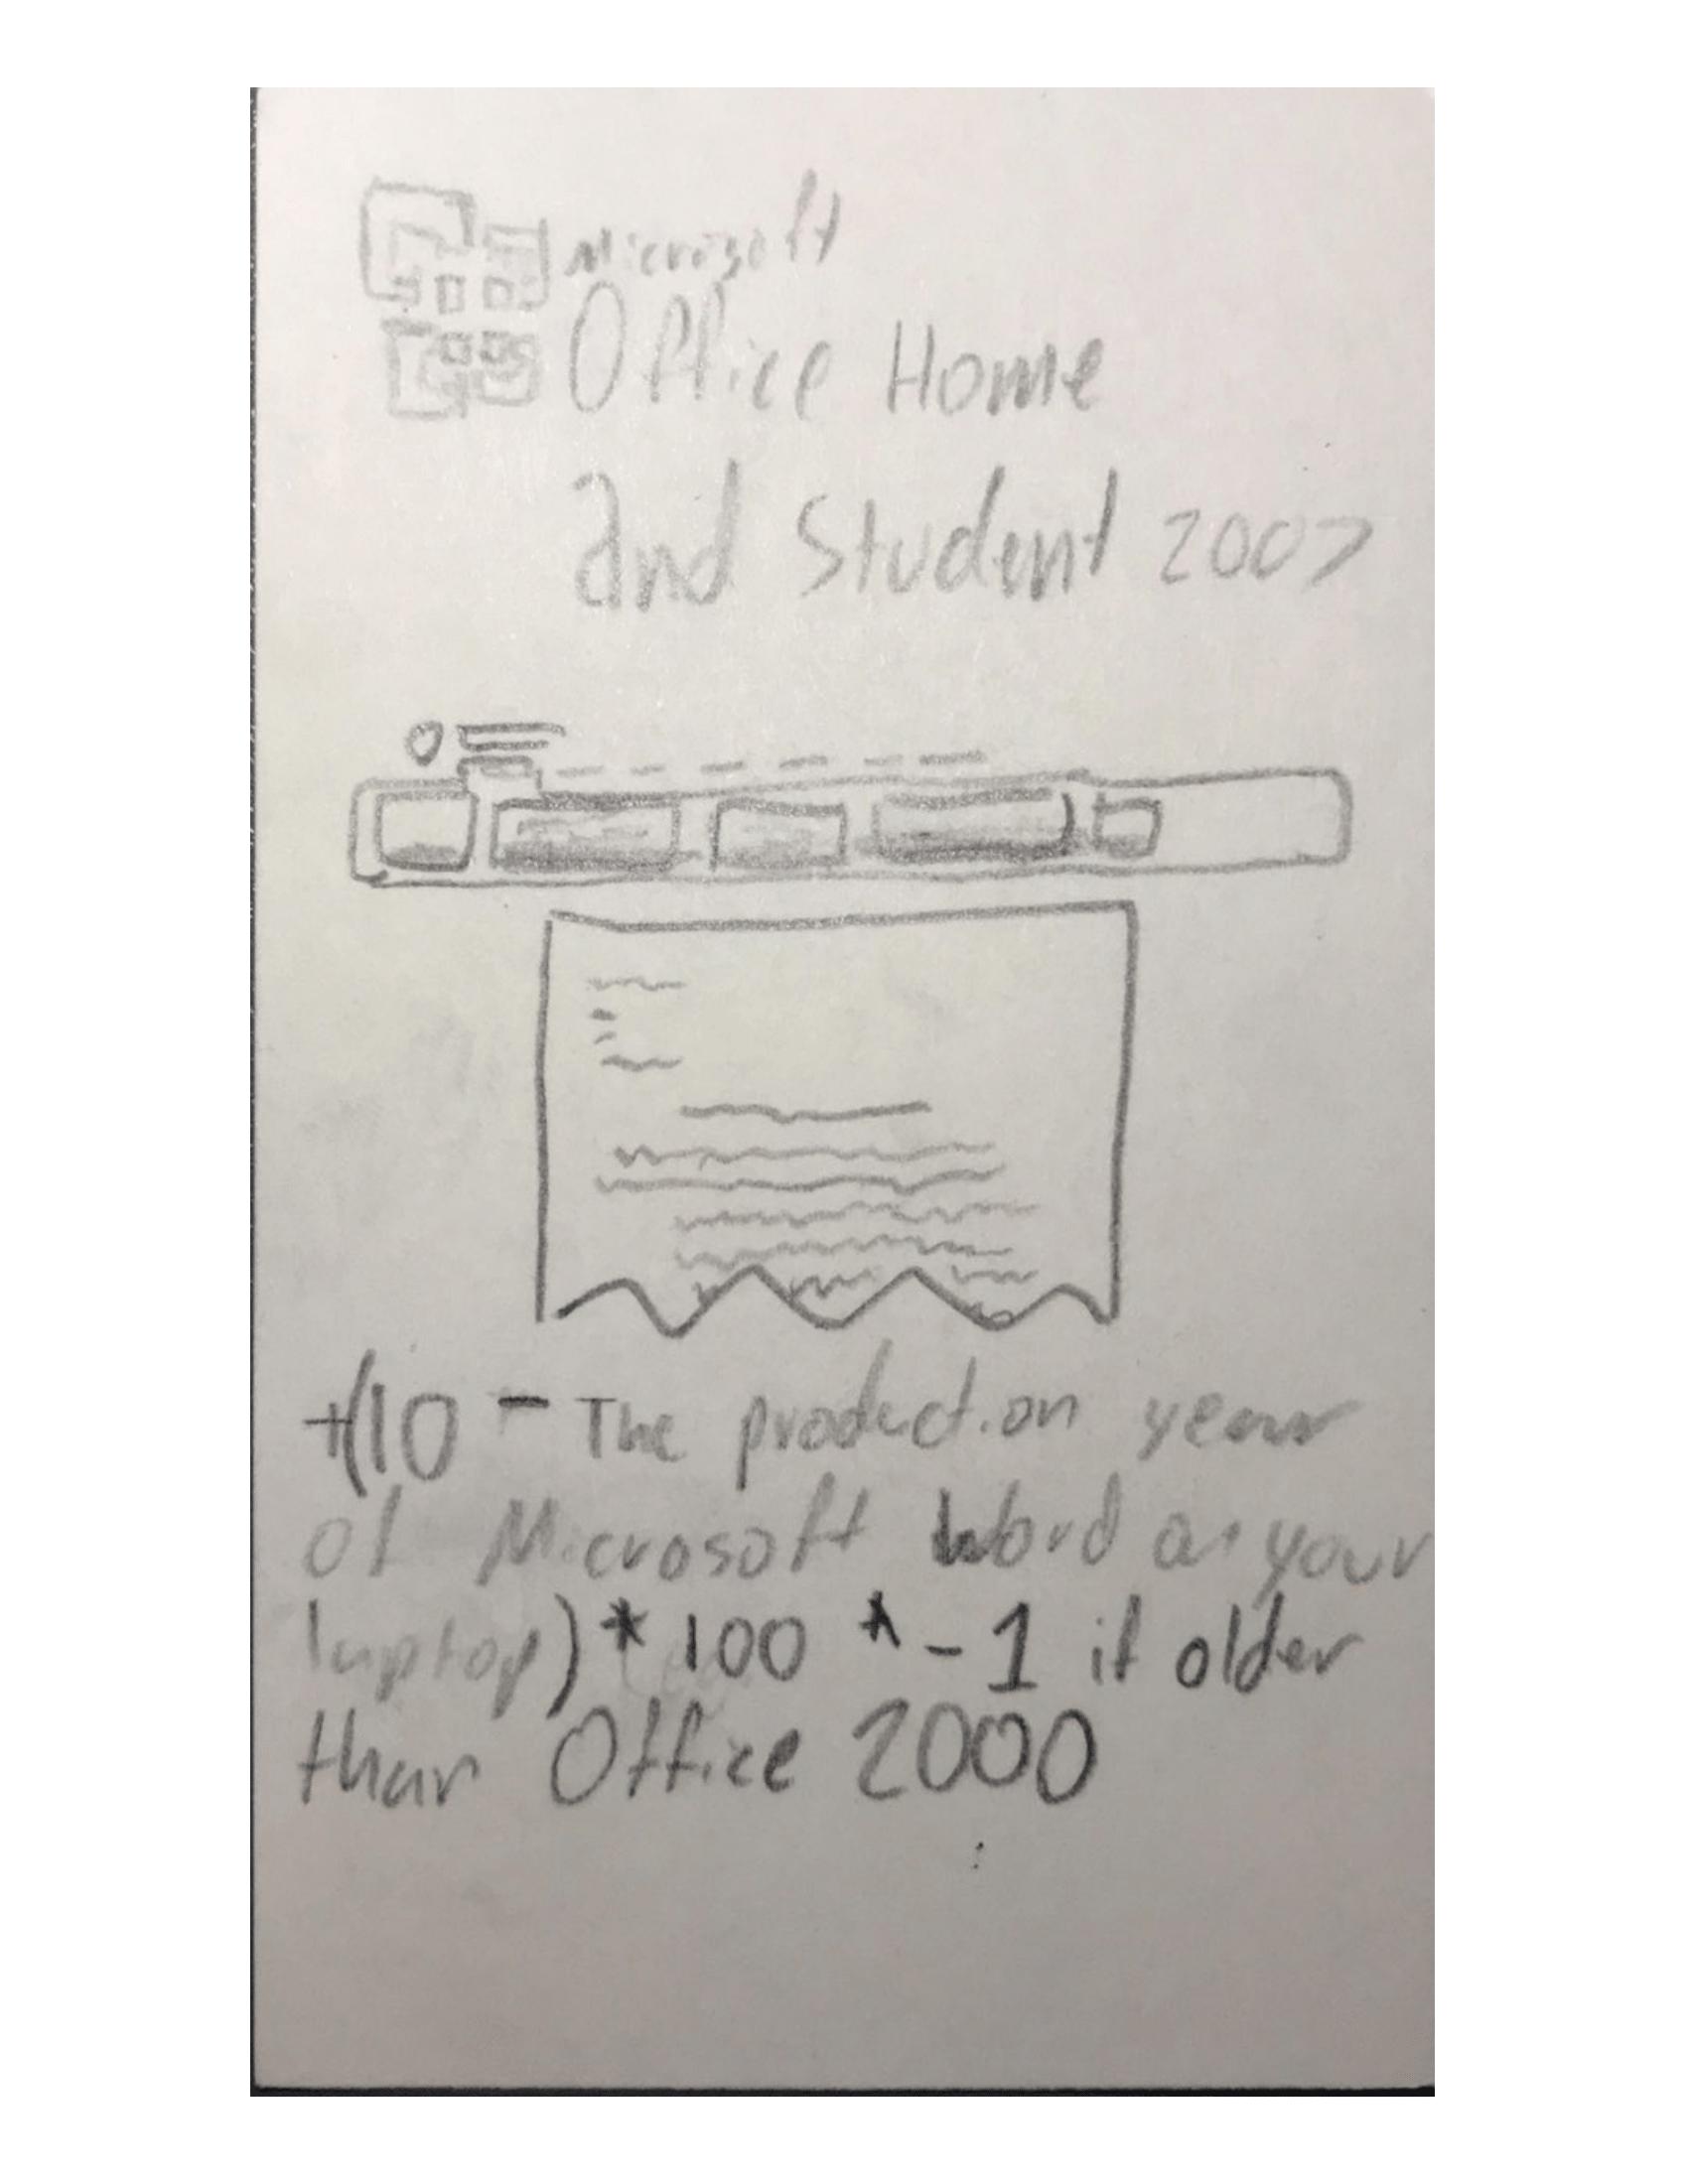 Microsoft
Office Home
and Student 2007
+(10 - The production year
of Microsoft Word on your
laptop) * 100 * -1 if older
than Office 2000